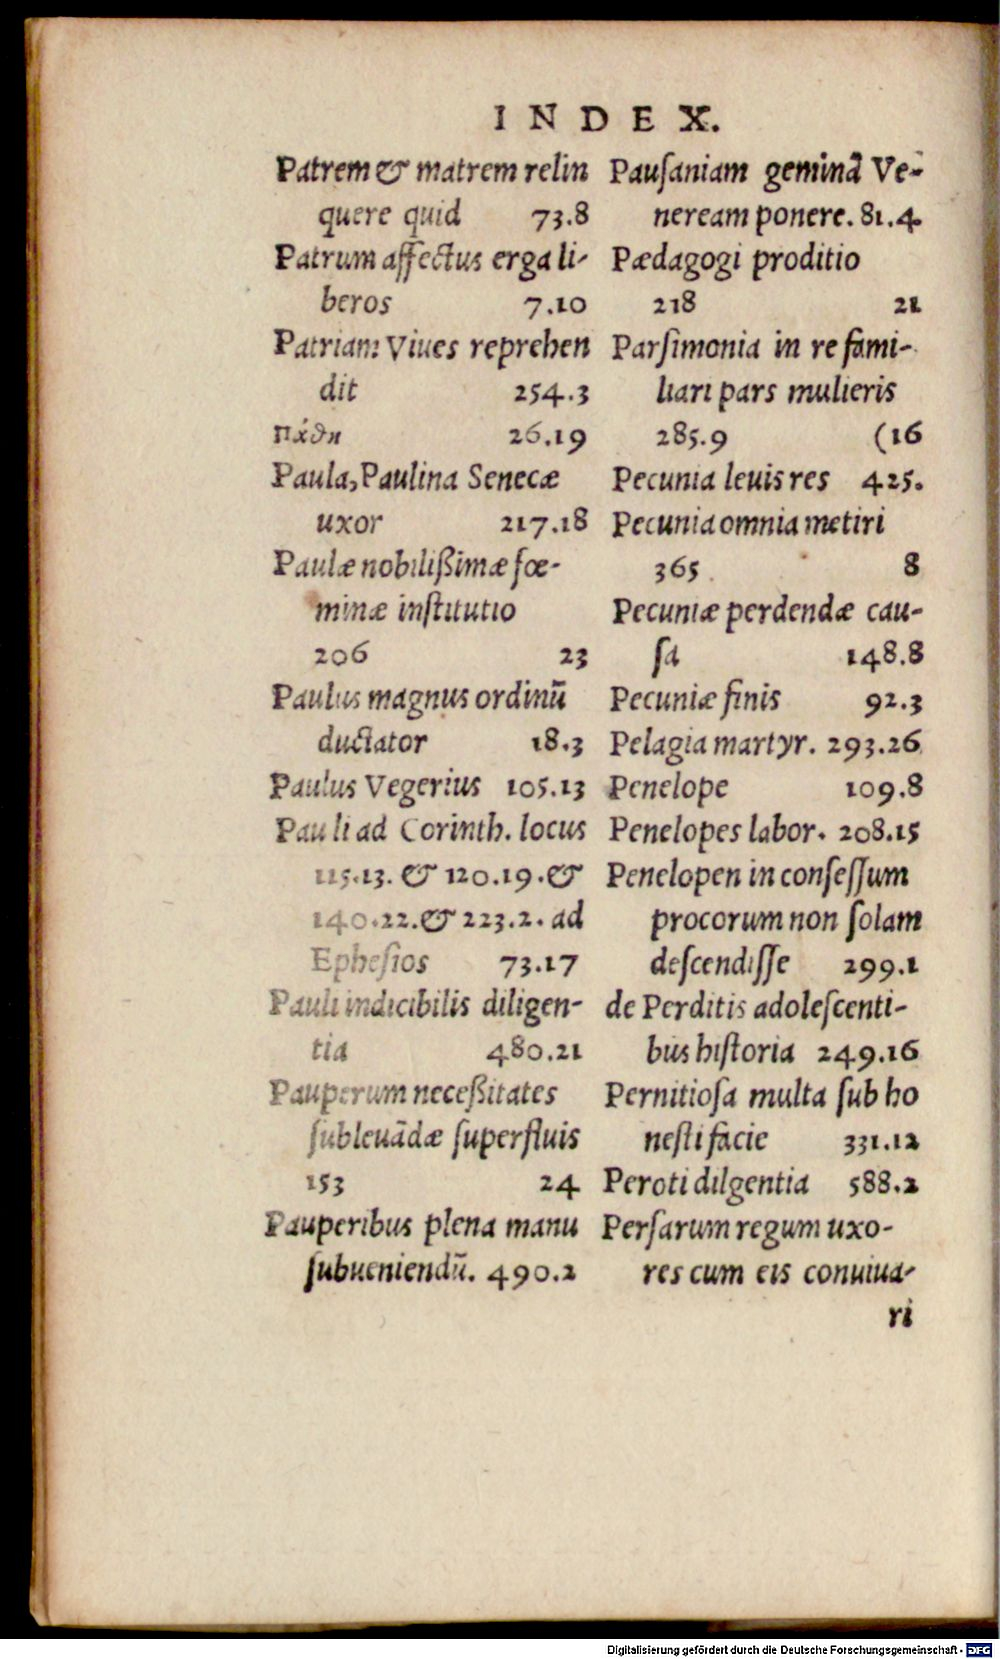 INDEX.
Patrem & matrem relin
quere quid 73.8
Patrum affectus erga li-
beros 7.10
Patriam Viues reprehen
dit 254.3
πάθη 26.19
Paula, Paulina Senecæ
uxor 217.18
Paulæ nobilißimæ fœ-
minæ inſtitutio
206 23
Paulus magnus ordinū
ductator 18.3
Paulus Vegerius 105.13
Pauli ad Corinth. locus
115.13. & 120.19. &
140.22. & 223.2. ad
Epheſios 73.17
Pauli indicibilis diligen-
tia 480.21
Pauperum neceßitates
ſubleuādæ ſuperfluis
153 24
Pauperibus plena manu
ſubueniendū. 490.2
Pauſaniam geminā Ve-
neream ponere. 81.4.
Pædagogi proditio
218 21
Parſimonia in re fami-
liari pars mulieris
285.9 (16
Pecunia leuis res 425.
Pecunia omnia metiri
365 8
Pecuniæ perdendæ cau-
ſa 148.8
Pecuniæ finis 92.3
Pelagia martyr. 293.26
Penelope 109.8
Penelopes labor. 208.15
Penelopen in conſeſſum
procorum non ſolam
deſcendiſſe 299.1
de Perditis adoleſcenti-
bus hiſtoria 249.16
Pernitioſa multa ſub ho
neſti facie 331.12
Peroti dilgentia 588.2
Perſarum regum uxo-
res cum eis conuiua-
ri
Digitalisierung gefördert durch die Deutsche Forschungsgemeinschaft - DFG